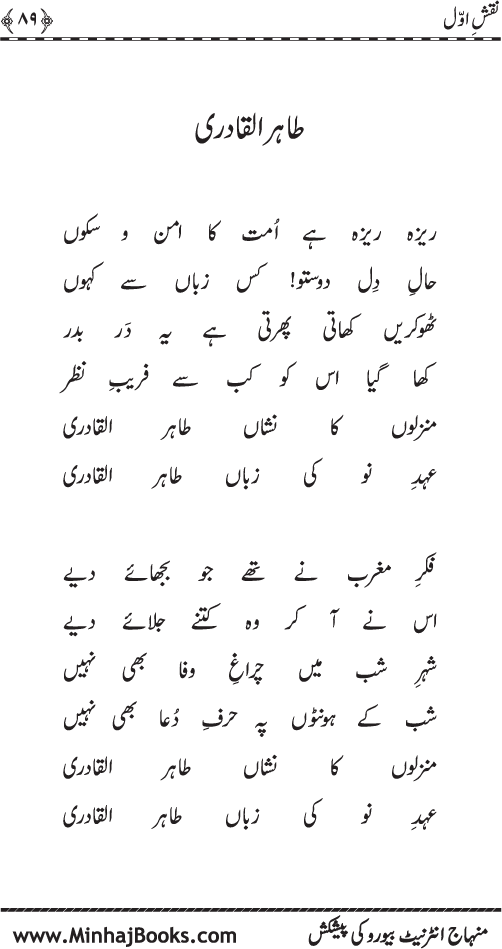 نقشِ اوّل ﴿۸۹﴾
طاہر القادری
ریزہ ریزہ ہے اُمت کا امن و سکوں
حالِ دِل دوستو! کس زباں سے کہوں
ٹھوکریں کھاتی پھرتی ہے یہ دَر بدر
کھا گیا اس کو کب سے فریبِ نظر
منزلوں کا نشاں طاہر القادری
عہدِ نو کی زباں طاہر القادری
فکرِ مغرب نے تھے جو بجھائے دیے
اس نے آ کر وہ کتنے جلائے دیے
شہرِ شب میں چراغِ وفا بھی نہیں
شب کے ہونٹوں پہ حرفِ دُعا بھی نہیں
منزلوں کا نشاں طاہر القادری
عہدِ نو کی زباں طاہر القادری
منہاج انٹرنیٹ بیورو کی پیشکش www.MinhajBooks.com